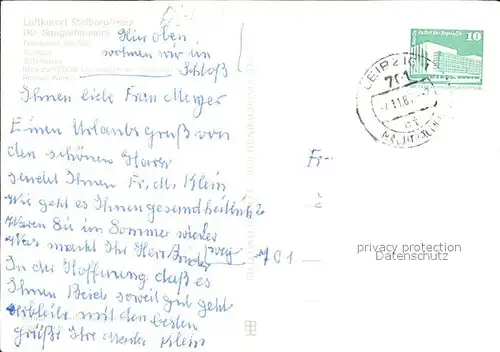 Luftkurort Stolberg/Harz
(Kr. Sangerhausen)
Hier oben
wohnen wir im
Schloß
Ihnen liebe Frau Meyer
Einen Urlaubsgruß von
den schönen Harz
sendet Ihnen Fr. M. Klein
Wie geht es Ihnen gesundheitlich?
Waren Sie im Sommer wieder
weg
Was macht Ihr Herr Bruder
In der Hoffnung daß es
Ihnen Beide soweit gut geht
verbleibe mit den besten
grüße Ihre Klein
Fr-
701
10
LEIPZIG
701
privacy protection
Datenschutz